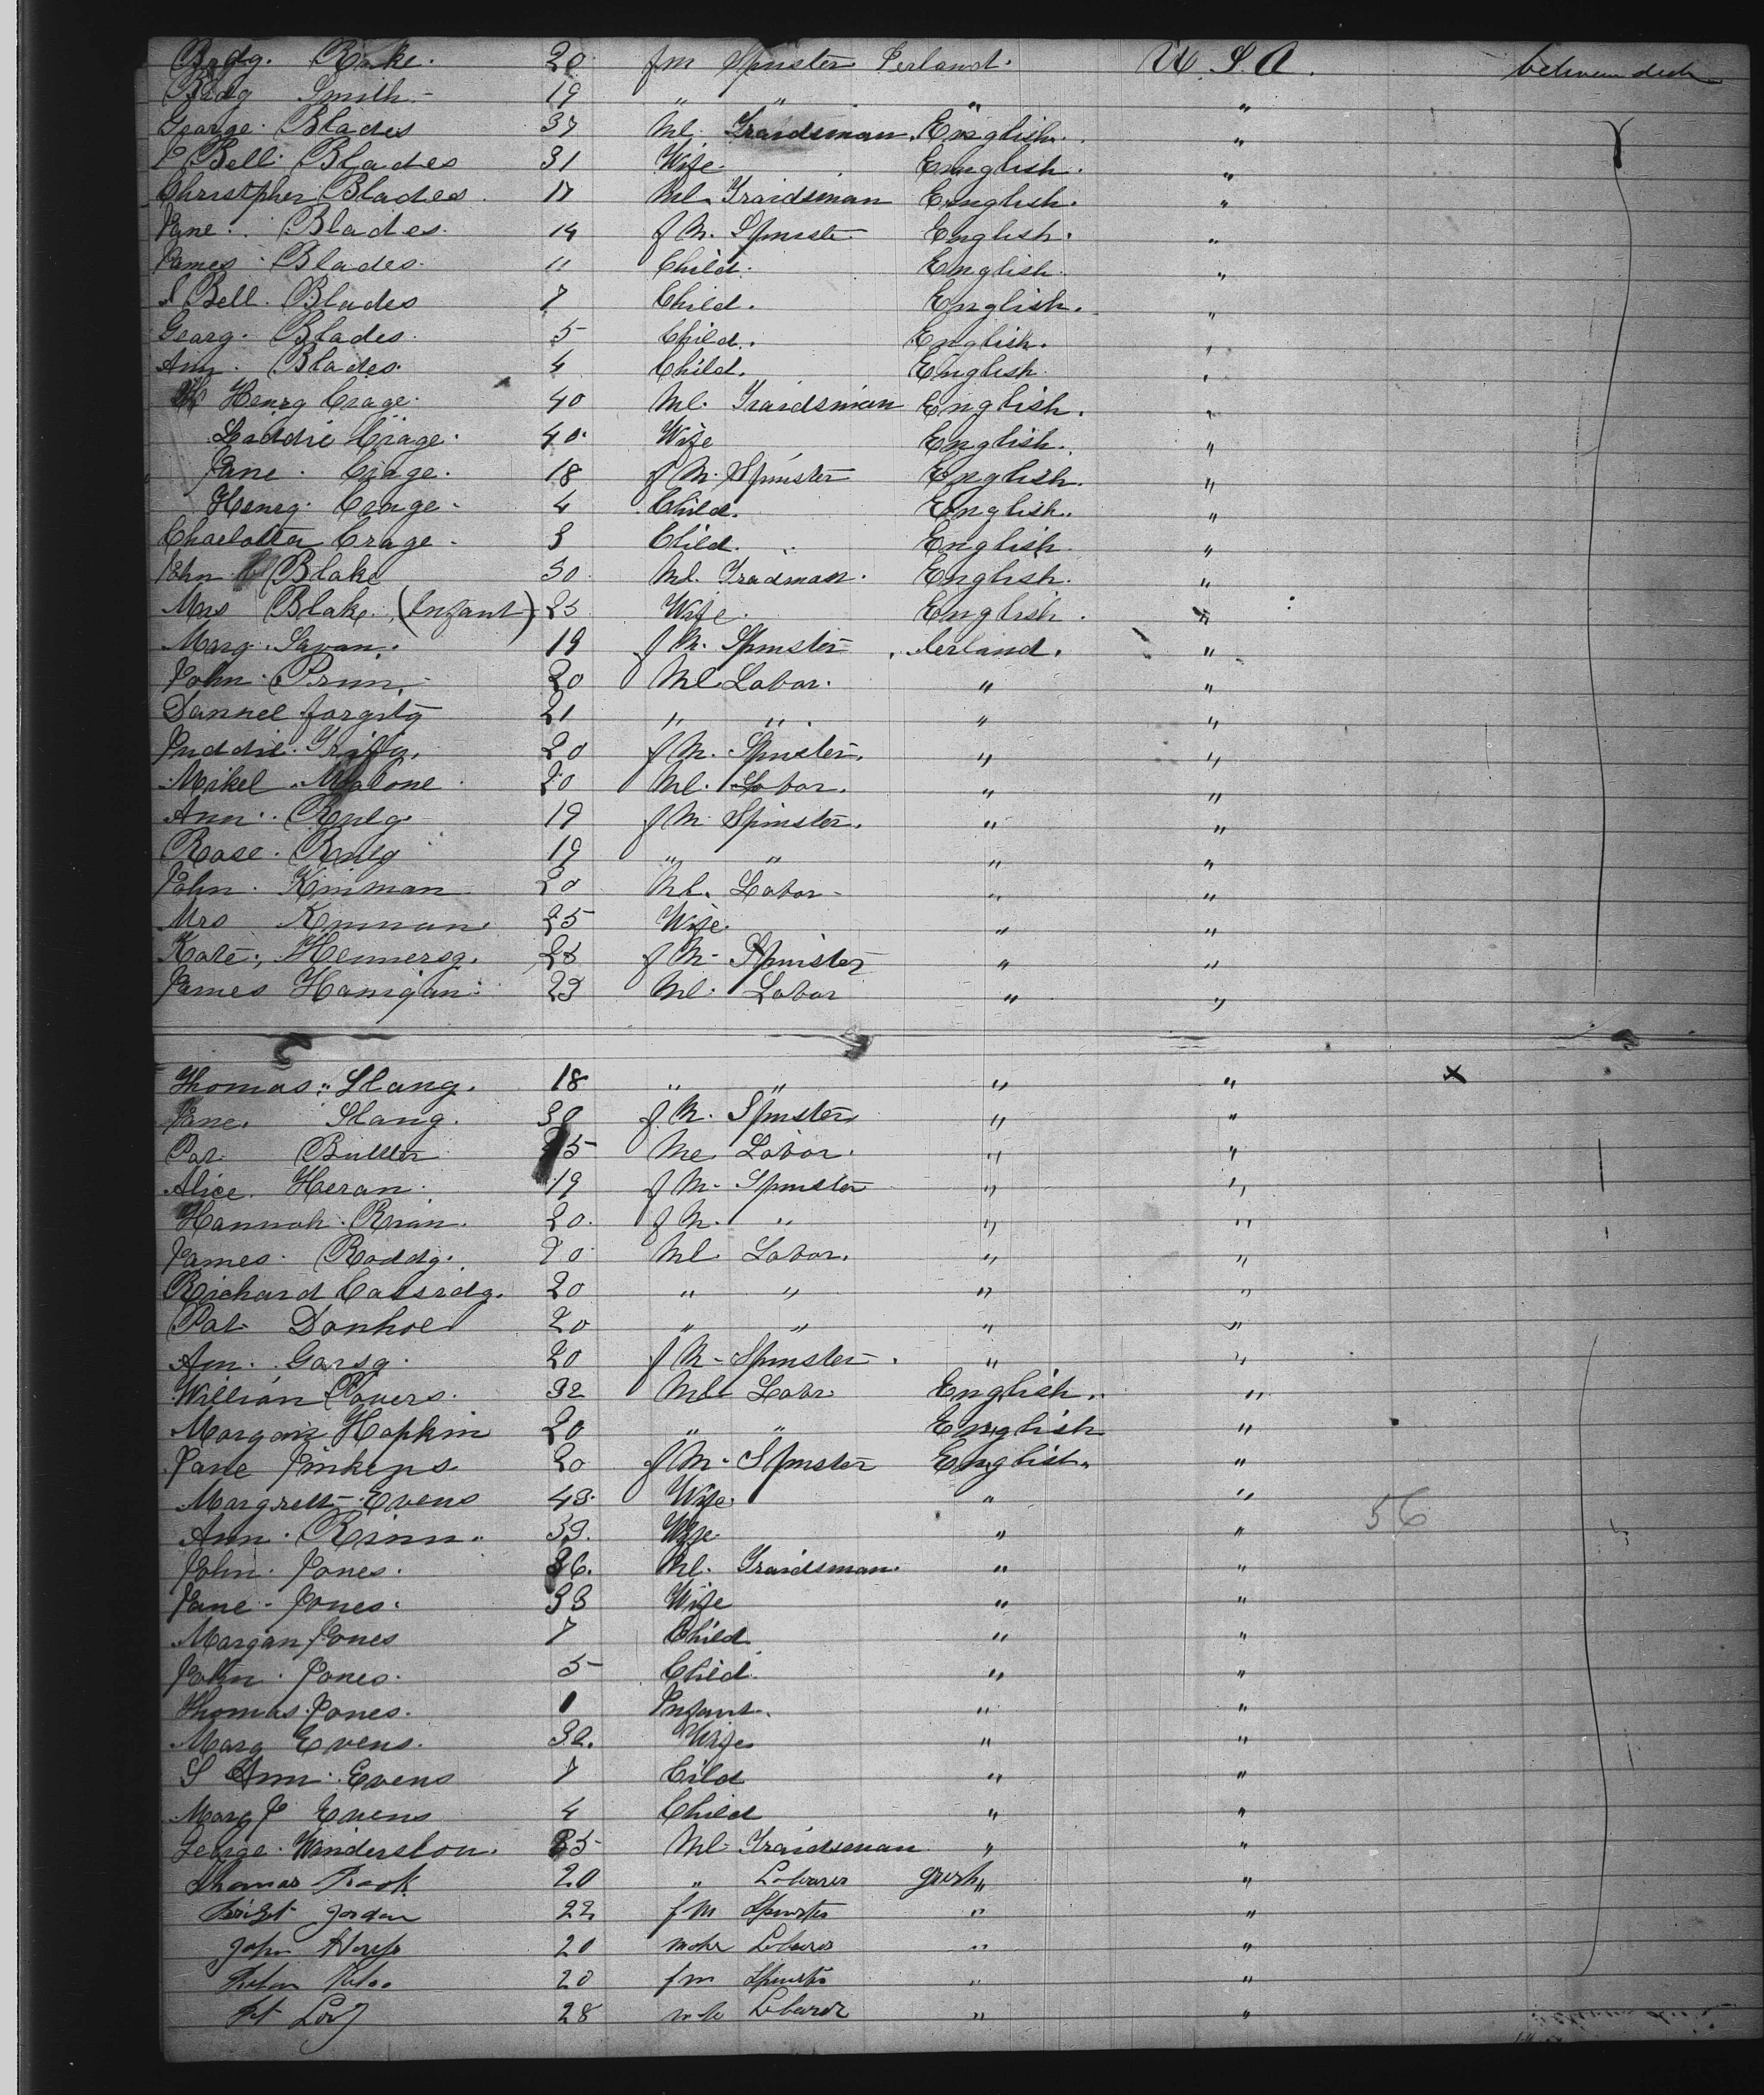 Bridg. Roke. 20. fm Spinster Ierland. U. S. A. between deck
Bridg Smith. 19 " " " "
George. Blades 37 Ml. Traidsman. English. "
I Bell. Blades 31 Wife. English. "
Christpher Blades. 17 Ml. Traidsman English. "
Jane. Blades. 14 f M. Spinster English. "
James. Blades. 11 Child. English. "
I Bell. Blades 7 Child. English. "
Georg. Blades. 5 Child. English. "
Ann. Blades. 4 Child. English. "
Henry Crage. 40 Ml. Traidsman English. "
Liddie Crage. 40. Wife English. "
Jane. Crage. 18 f M. Spinster English. "
Henry. Crage. 4 Child. English. "
Charlotta Crage. 3 Clild. English. "
John Blake 30. Ml. Tradman. English. "
Mrs Blake. (Infant) 25 Wife. English. "
Marg. Savan. 19 f M. Spinster Ierland. "
John. Prim. 20 Ml Labor. " "
Dannel fargity 21 " " " "
Juddie. Grifiy. 20 f M. Spinster. " "
Mikel Malone 20 Ml. Labor. " "
Ann. Rylg. 19 f M Spinster. " "
Rose. Rylg 19 " " " "
John. Kinman 20 Ml. Labor. " "
Mrs Kinman. 25 Wife. " "
Kate. Hennersy. 25 f M. Spinster " "
James Hanigan. 23 Ml. Labor " "
Thomas. Slang. 18 " " " " x
Jane. Slang. 30 f M. Spinster " "
Pat. Buller 25 Ml Labor. " "
Alice. Heran. 19 f M. Spinster " "
Hannah. Rian. 20. f M. " " "
James. Roddy. 20. Ml Labor. " "
Richard Cassrdy. 20 " " " "
Pat. Donhoe 20 " " " "
Ann. Garsy. 20 f M. Spinster. " "
William Povers. 32 Ml Labr. English. "
Morgan Hopkin 20 " " English "
Jane Jinkens 20 f M. Spinster English. "
Margrett Evens 43. Wife. " "
Ann. Rinn. 33. Wife. " " 56
John. Jones. 36. Ml. Traidsman. " "
Jane. Jones. 33 Wife " "
Morgan Jones 7 Child " "
John. Jones. 5 Clild. " "
Thomas. Jones. 1 Infant. " "
Mary Evens. 32. Wife " "
S Ann. Evens 7 Cild " "
Mary J Evens 4 Child " "
George. Winderslow. 25 Ml Traidsman " "
Thomas Rook 20 " Laborer Irish " "
Brigt Jordan 22 fm Spinster " "
John 20 male Laborer " "
20 fm Spinster " "
28 male Laborer " "